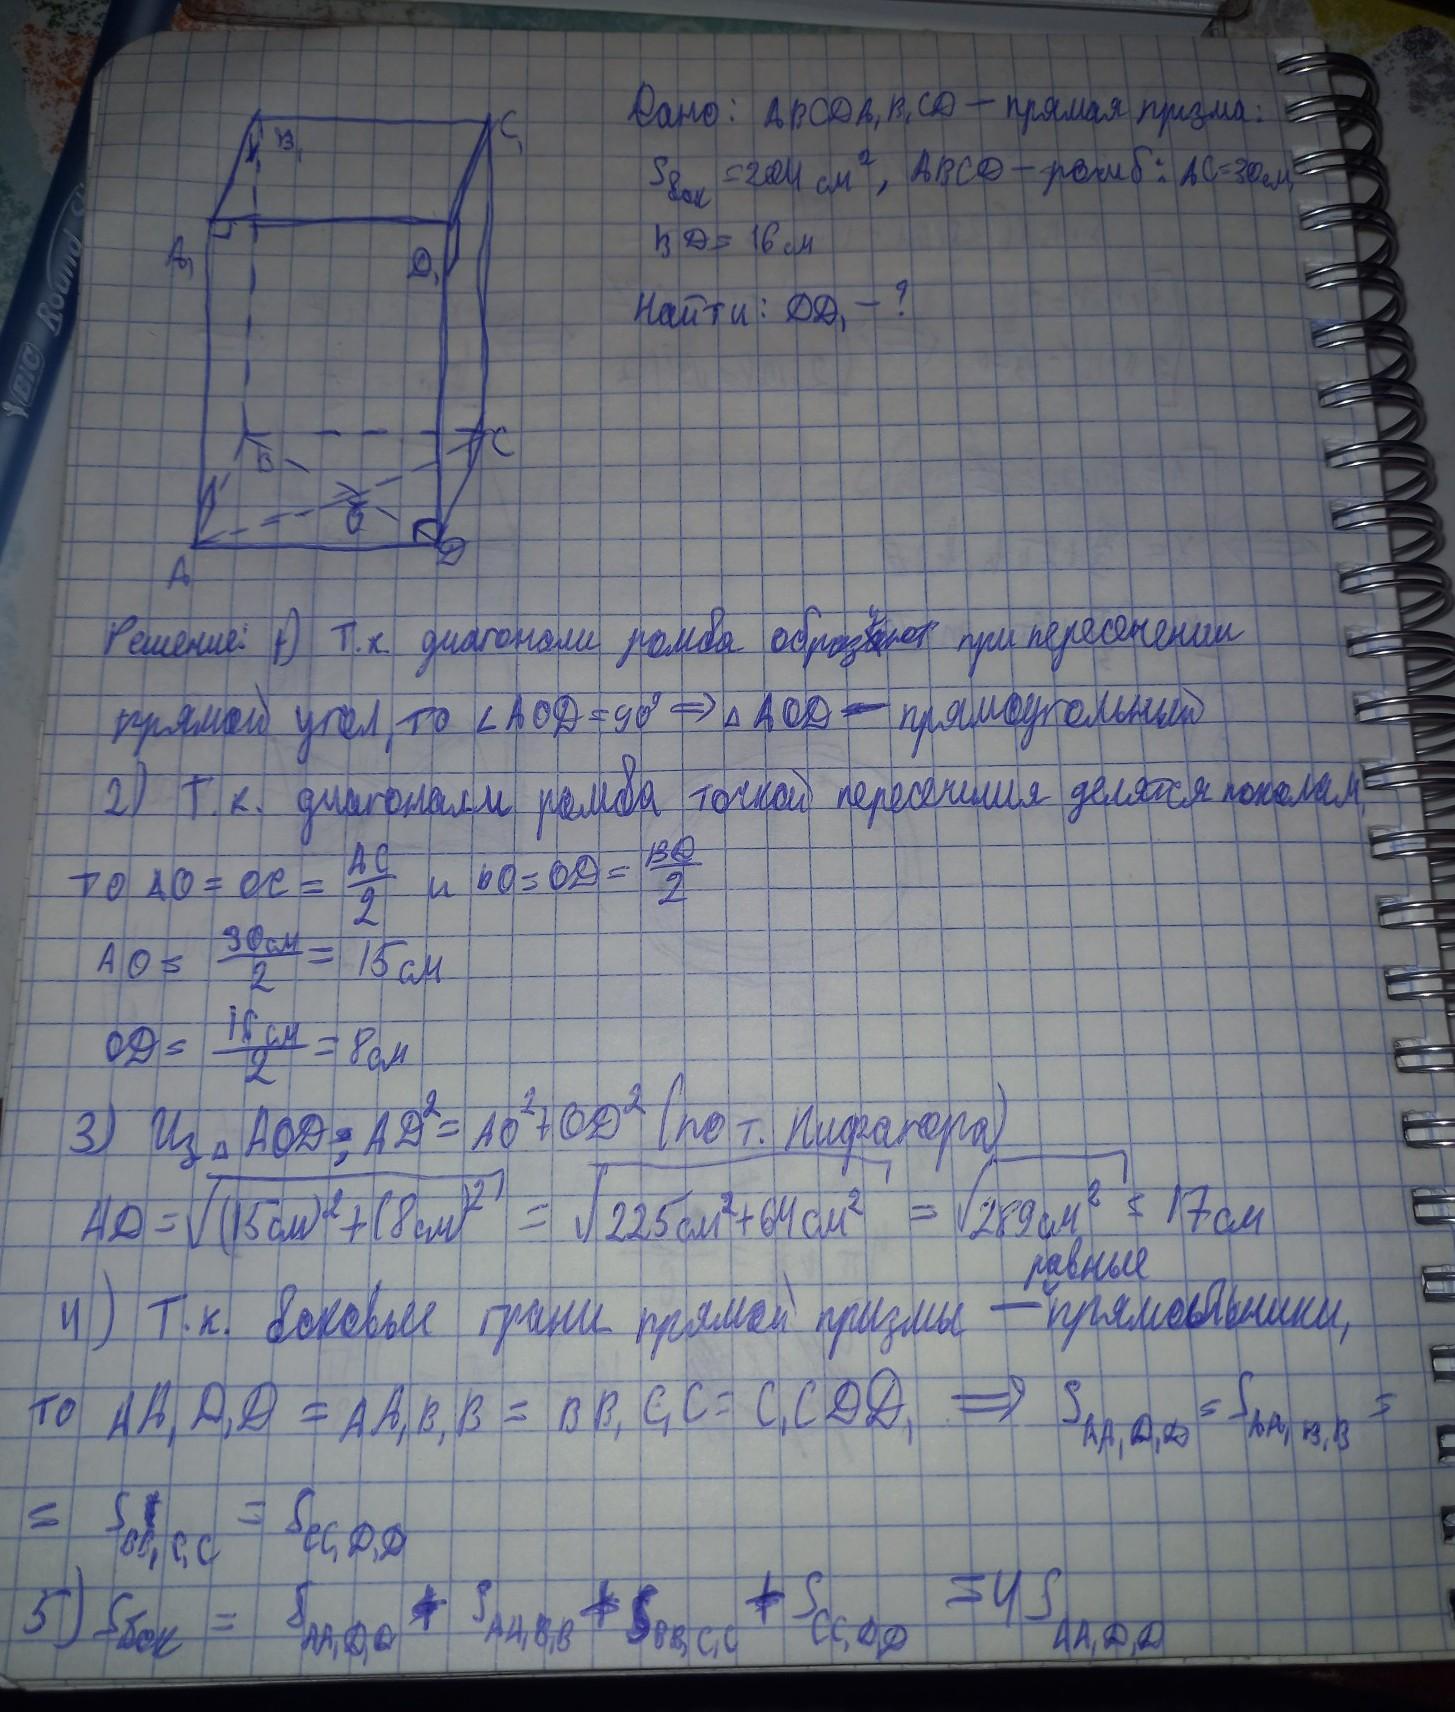 BIC Round St
B₁
C₁
A₁
D₁
B
C
O
A
D
Дано: ABCDA₁B₁CD — прямая призма:
Sбок = 2044 см², ABCD — ромб: AC = 30см,
BD = 16 см
Найти: DD₁ — ?
Решение: 1) Т.к. диагонали ромба образуют при пересечении
прямой угол, то ∠AOD = 90° ⇒ △AOD — прямоугольный
2) Т.к. диагонали ромба точкой пересечения делятся пополам,
то AO = OC = AC/2 и BO = OD = BD/2
AO = 30см/2 = 15см
OD = 16см/2 = 8см
3) Из △AOD: AD² = AO² + OD² (по т. Пифагора)
AD = √((15см)² + (8см)²) = √(225см² + 64см²) = √(289см²) = 17см
равные
4) Т.к. боковые грани прямой призмы —
то AA₁D₁D = AA₁B₁B = BB₁C₁C = C₁CDD₁ ⇒ S AA₁D₁D = S AA₁B₁B =
= S BB₁C₁C = S CC₁D₁D
5) Sбок = S AA₁D₁D + S AA₁B₁B + S BB₁C₁C + S CC₁D₁D = 4S AA₁D₁D